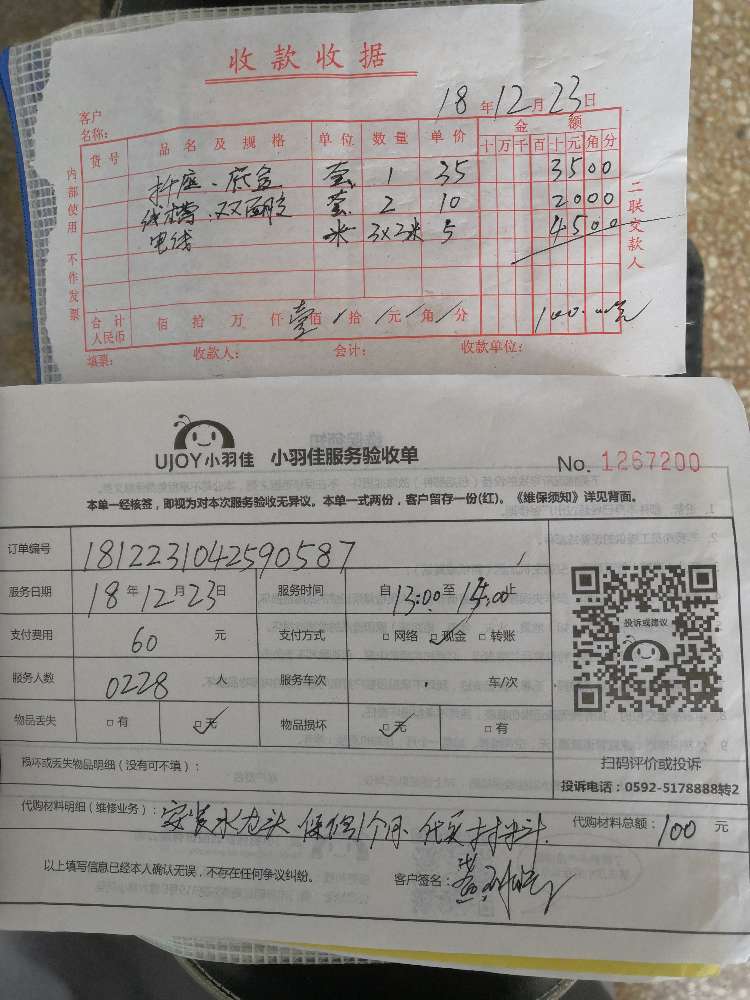 收款收据
18 年 12 月 23 日
客户
名称:
货号 品名及规格 单位 数量 单价 金额
十 万 千 百 十 元 角 分
底盒 套 1 35 3500
线槽、双面胶 套 2 10 2000
电线 米 3×2米 5 4500
内部使用 不作发票
二联交款人
合计
人民币 佰 拾 万 仟 壹 佰 / 拾 / 元 / 角 / 分 100.00元
填票: 收款人: 会计: 收款单位:
UJOY小羽佳 小羽佳服务验收单 No. 1267200
本单一经核签，即视为对本次服务验收无异议。本单一式两份，客户留存一份(红)。《维保须知》详见背面。
订单编号 1812231042590587
服务日期 18 年 12 月 23 日 服务时间 自 13:00 至 15:00 止
支付费用 60 元 支付方式 □ 网络 ☑ 现金 □ 转账
服务人数 0228 人 服务车次 车/次
物品丢失 □ 有 ☑ 无 物品损坏 ☑ 无 □ 有
投诉或建议
扫码评价或投诉
投诉电话：0592-5178888转2
损坏或丢失物品明细（没有可不填）：
代购材料明细（维修业务）： 安装水龙头 保修1个月 代买 代购材料总额： 100 元
以上填写信息已经本人确认无误，不存在任何争议纠纷。 客户签名：